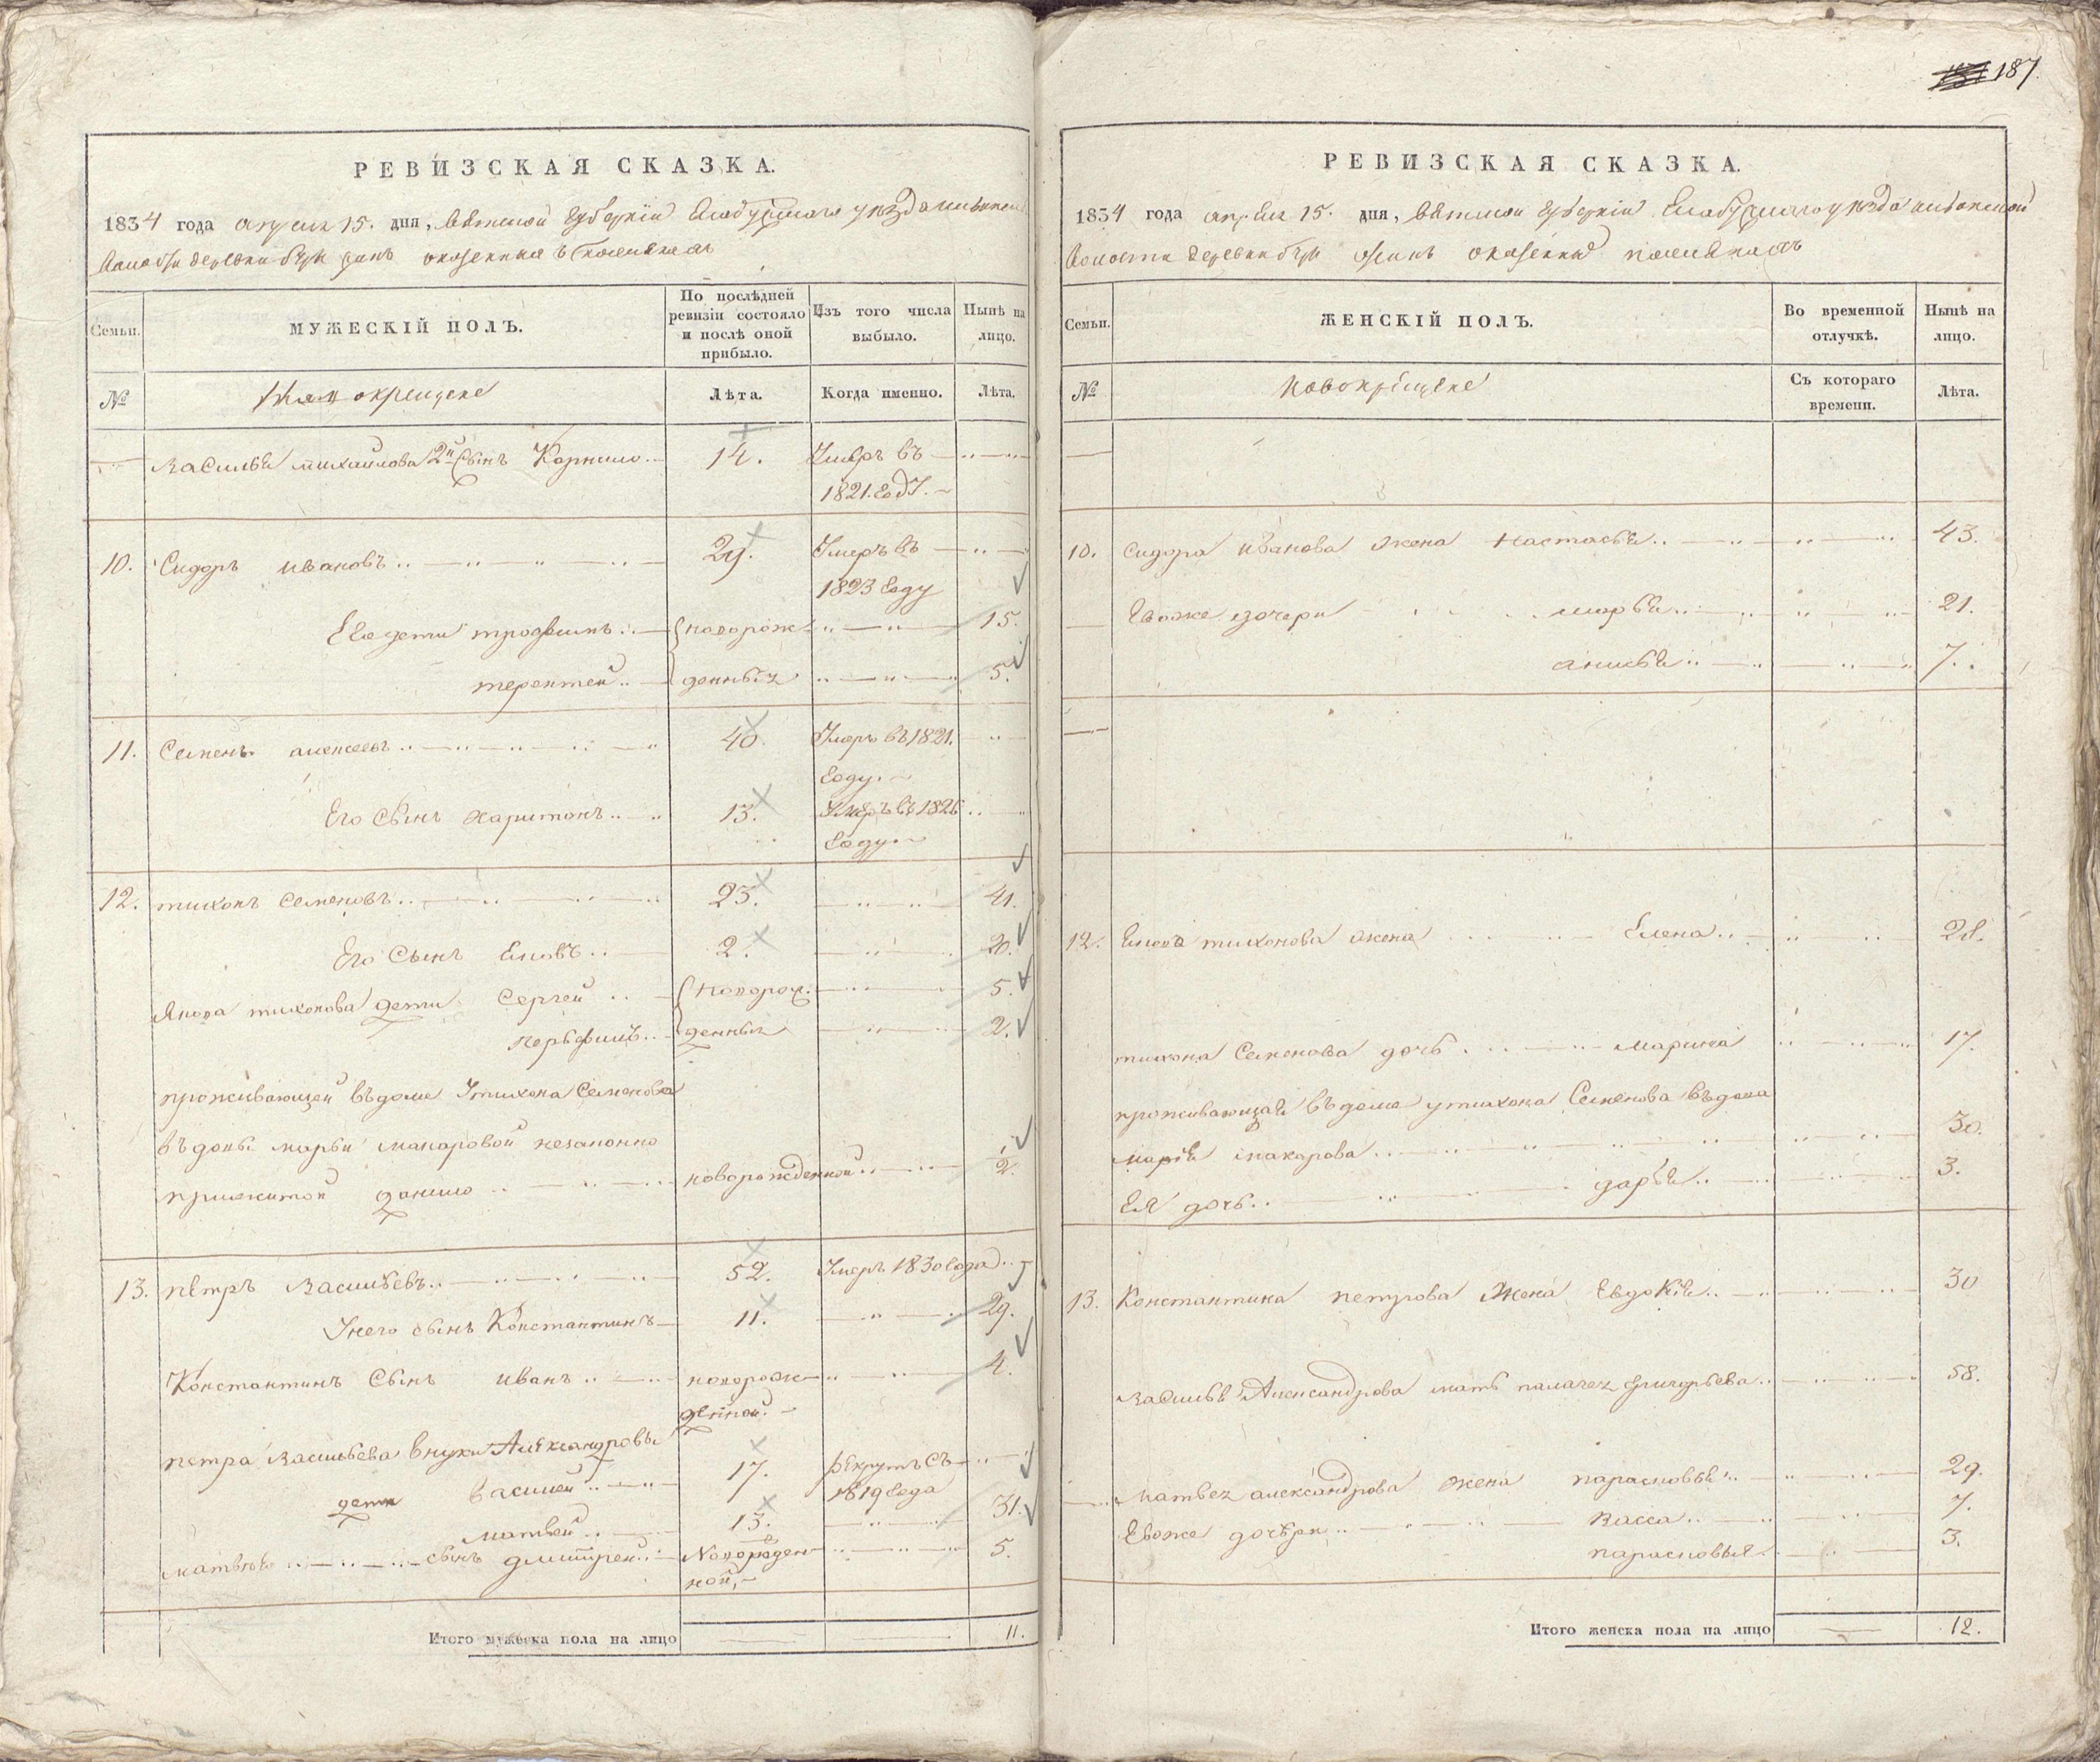 187.
РЕВИЗСКАЯ СКАЗКА.
1834 года апреля 15. дня, Вятской губернїи Елабужскаго уѣзда
волости деревни
МУЖЕСКІЙ ПОЛЪ.
Семьи.
По послѣдней ревизіи состояло и послѣ оной прибыло.
Изъ того числа выбыло.
Нынѣ на лицо.
№
Лѣта.
Когда именно.
Лѣта.
Василья михайлова 2й сынъ Корнило 14. Умеръ въ
1821. году.
10. Сидоръ ивановъ 29. Умеръ въ
1823 году
Его дети трофимъ новорож 15.
терентей денныхъ 5.
11. Семенъ алексеевъ 40. Умеръ въ 1821.
году.
Его сынъ харитонъ 13. Умеръ въ 1826
году
12. тихонъ Семеновъ 23. 41.
Его Сынъ Еновъ 2. 20.
Янова тихонова дети Сергей новорож 5.
перьфилъ денныхъ 2.
проживающей въ доме У тихона Семенова
въдовы марьи макаровой незаконно
прижитой данило новорожденной 1/2.
13. петръ Васильевъ 52. Умеръ 1830 года
У него сынъ Константинъ 11. 29.
Константинъ Сынъ иванъ новорож 4.
денной.
петра Васильева внуки Александровы
дети Василей 17. рекрутъ съ
1819 года
матвей 13. 31.
матвѣя сынъ дмитрей Новорожден 5.
ной,
Итого мужеска пола на лицо 11.
РЕВИЗСКАЯ СКАЗКА.
1834 года апреля 15. дня, Вятской губернїи Елабужскаго уѣзда
волости деревни
Семьи.
ЖЕНСКІЙ ПОЛЪ.
Во временной отлучкѣ.
Нынѣ на лицо.
№
новокрещене
Съ котораго времени.
Лѣта.
10. Сидора иванова жена настасья 43.
Евоже дочери марья 21.
анисья 7.
12. Енова тихонова жена Елена 28.
тихона Семенова дочь марина 17.
проживающая въ доме у тихона Семенова въдова
марья макарова 30.
Ея дочь дарья 3.
13. Константина петрова Жена Евдокия 30
Василья Александрова мать палагея григорьева 58.
матвея александрова жена парасковья 29.
Евоже дочери васса 7.
парасковья 3.
Итого женска пола на лицо 12.